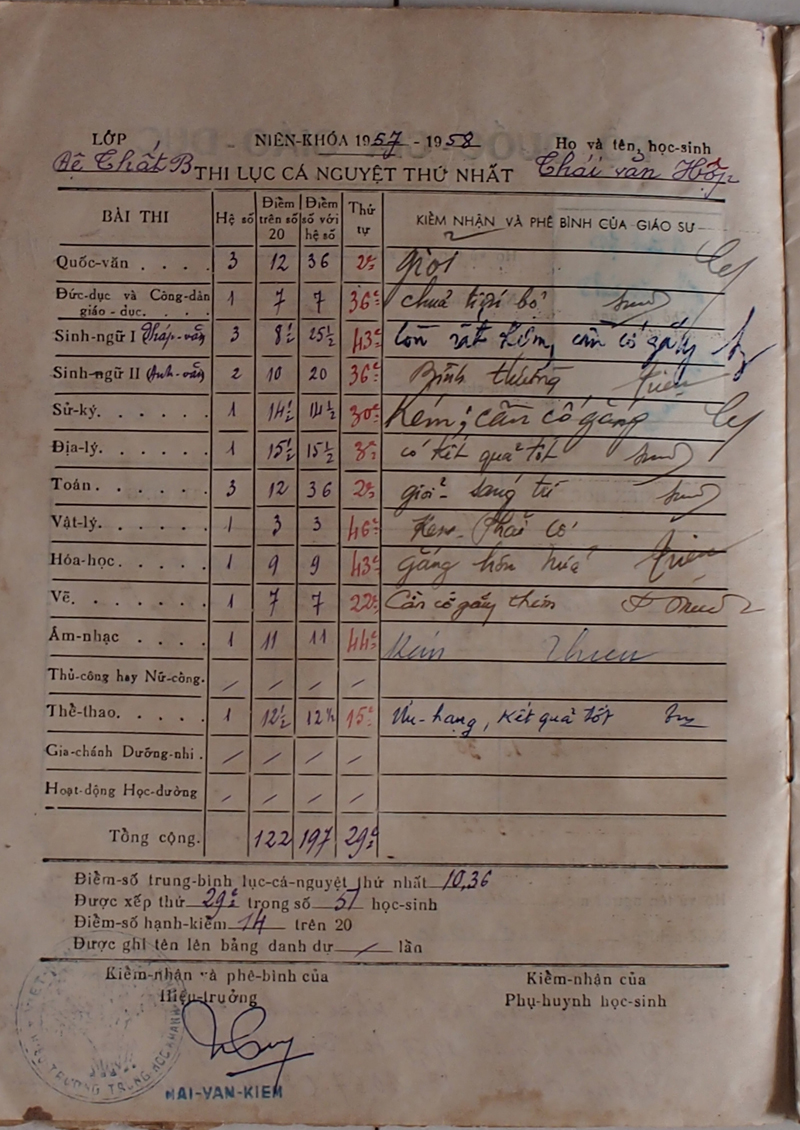 LỚP NIÊN-KHÓA 1957 - 1958 Họ và tên, học-sinh
Đệ Thất B THI LỤC CÁ NGUYỆT THỨ NHẤT Thái văn Hợp
BÀI THI Hệ số Điểm trên số 20 Điểm số với hệ số Thứ tự KIỂM NHẬN VÀ PHÊ BÌNH CỦA GIÁO SƯ
Quốc-văn . . . . 3 12 36 2e Giỏi
Đức-dục và Công-dân giáo - dục. . . . . 1 7 7 36e chưa tiến bộ
Sinh-ngữ I (Pháp-văn) 3 8½ 25½ 43e Còn rất kém, cần cố gắng
Sinh-ngữ II (Anh-văn) 2 10 20 36e Bình thường
Sử-ký. . . . . . 1 14½ 14½ 30e Kém; cần cố gắng
Địa-lý. . . . . . 1 15½ 15½ 8e có kết quả tốt
Toán. . . . . . 3 12 36 2e giỏi - sáng trí
Vật-lý. . . . . . 1 3 3 46e Kém - Phải cố
Hóa-học. . . . . 1 9 9 43e gắng hơn nữa
Vẽ. . . . . . . 1 7 7 22e Cần cố gắng thêm
Âm-nhạc . . . . 1 11 11 44e Kém
Thủ-công hay Nữ-công. / / / /
Thể-thao. . . . . 1 12½ 12½ 15e Ưu-hạng, kết quả tốt
Gia-chánh Dưỡng-nhi . / / / /
Hoạt-động Học-đường / / / /
Tổng cộng. 122 197 29e
Điểm-số trung-bình lục-cá-nguyệt thứ nhất 10,36
Được xếp thứ 29e trong số 51 học-sinh
Điểm-số hạnh-kiểm 14 trên 20
Được ghi tên lên bảng danh dự / lần
Kiểm-nhận và phê-bình của Kiểm-nhận của
Hiệu-trưởng Phụ-huynh học-sinh
HAI-VAN-KIEM